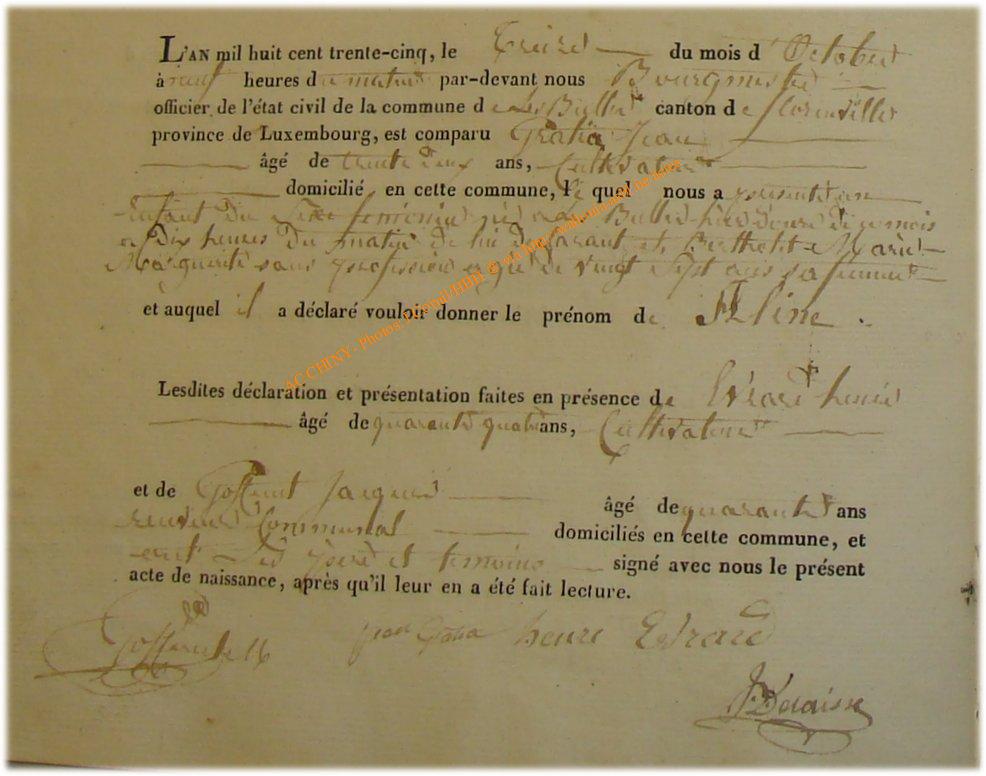 L'AN mil huit cent trente-cinq, le treize du mois d'Octobre
à neuf heures du matin par-devant nous Bourgmestre
officier de l'état civil de la commune de les Bulles canton de florenville
province de Luxembourg, est comparu Gratia Jean
âgé de trente deux ans, Cultivateur
domicilié en cette commune, le quel nous a présenté un
enfant du sexe feminin né a les Bulles hier douze de ce mois
a dix heures du matin de lui déclarant et Marie
Marguerite sans profession agé de vingt sept ans sa femme
et auquel il a déclaré vouloir donner le prénom de Eline .
Lesdites déclaration et présentation faites en présence de Evrard henri
âgé de quarante quatre ans, Cultivateur
et de Goffinet Jacques âgé de quarante ans
receveur Communal domiciliés en cette commune, et
ont les père et temoins signé avec nous le présent
acte de naissance, après qu'il leur en a été fait lecture.
jean Gratia henri Evrard
AC CHINY - Photos